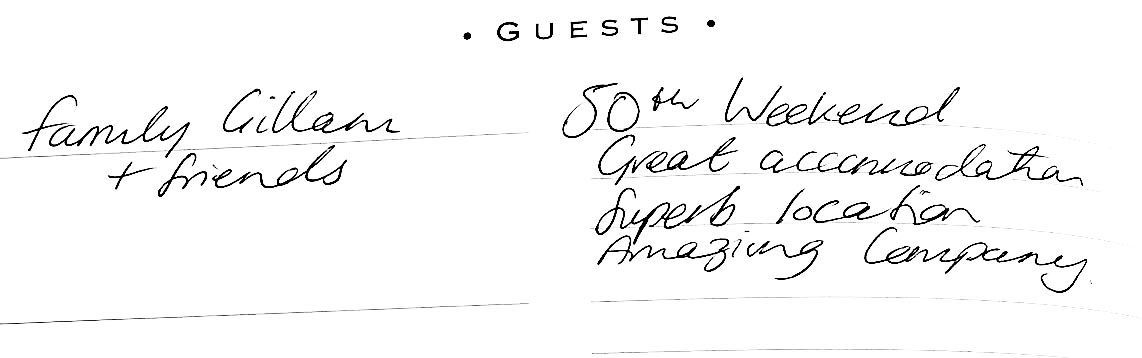 • GUESTS •
Family Gillam
+ friends
50th Weekend
Great accomodation
Superb location
Amazing Company.